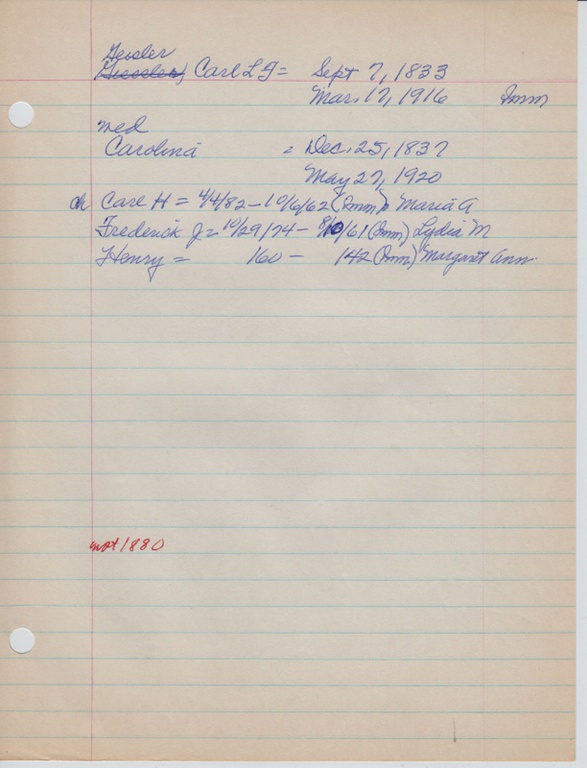 Geisler
Giessler, Carl L F = Sept 7, 1833
Mar. 17, 1916 Imm
med
Carolina = Dec. 25, 1837
May 27, 1920
ch Carl H = 4/4/82 - 10/6/62 (Imm) Maria A
Frederick J = 10/29/74 - 8/10/61 (Imm) Lydia M
Henry = 160 - 142 (Imm) Margaret Ann
not 1880